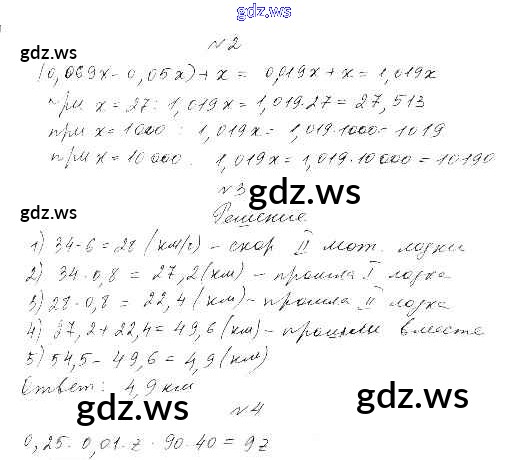 gdz.ws
№2
gdz.ws
(0,069x - 0,05x) + x = 0,019x + x = 1,019x
при x = 27: 1,019x = 1,019·27 = 27,513
при x = 1000: 1,019x = 1,019·1000 = 1019
при x = 10 000: 1,019x = 1,019·10 000 = 10190
№3
gdz.ws
gdz.ws
Решение
1) 34-6 = 28 (км/г) - скор II мот. лодки
2) 34·0,8 = 27,2 (км) - прошла I лодка
3) 28·0,8 = 22,4 (км) - прошла II лодка
4) 27,2 + 22,4 = 49,6 (км) - прошли вместе
5) 54,5 - 49,6 = 4,9 (км)
Ответ: 4,9 км
gdz.ws
gdz.ws
№4
0,25·0,01·z·90·40 = 9z